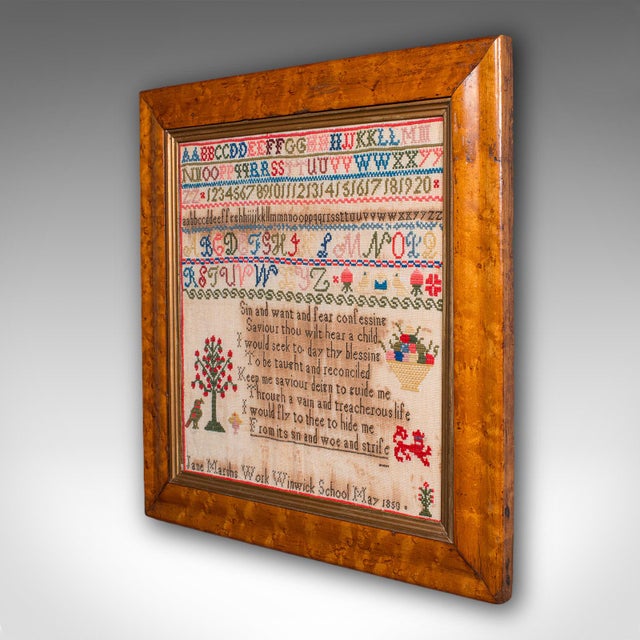 AABBCCDDEEFFGGHHIIJJKKLLM
NNOOPPQQRRSSTTUUVVWWXXYY
ZZ 1234567891011121314151617181920
aabbccddeeffgghhiijjkkllmmnnooppqqrrssttuuvvwwxxyyzz
ABCDEFGHIJLMNOPQ
RSTUVWYZ
Sin and want and fear confessing
Saviour thou wilt hear a child
I would seek to day thy blessing
To be taught and reconciled
Keep me saviour deign to guide me
Through a vain and treacherous life
I would fly to thee to hide me
From its sin and woe and strife
Jane Work Winwick School May 1850